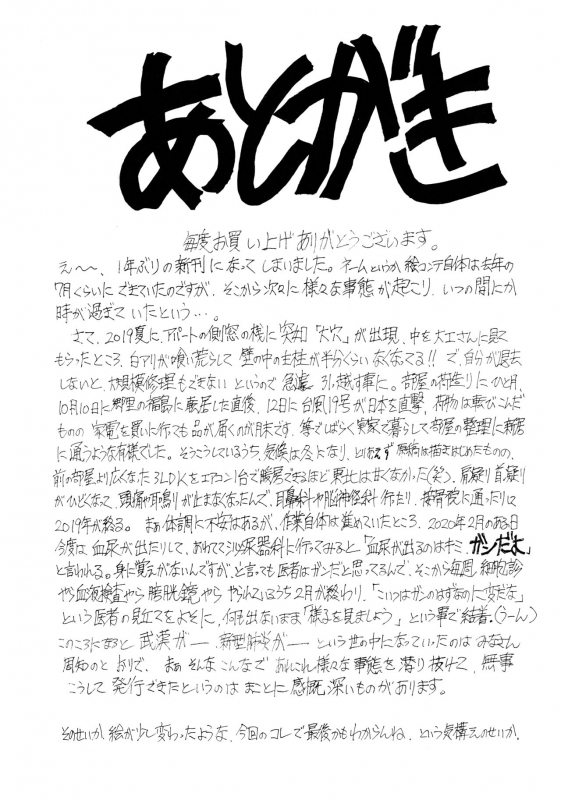 あとがき
毎度お買い上げありがとうございます。
え〜〜、1年ぶりの新刊になってしまいました。ネームというか絵コンテ自体は去年の
7月くらいにできていたのですが、そこから次々に様々な事態が起こり、いつの間にか
時が過ぎていたという…。
さて、2019夏に、アパートの側窓の桟に突如「大穴」が出現、中を大工さんに見て
もらったところ、白アリが喰い荒らして壁の中の主柱が半分くらいなくなってる!! で、自分が退去
しないと、大規模修理もできないというので急遽引っ越す事に。部屋の荷造りにひと月、
10月10日に郷里の福島に転居した直後、12日に台風19号が日本を直撃、荷物は転びこんだ
ものの家電を買いに行っても品が届くのが月末です、等でしばらく実家で暮らして部屋の整理に新居
に通うような有様でした。そうこうしているうち、気候は冬になり、とりあえず執筆は描きはじめたものの、
前の部屋より広くなった3LDKをエアコン1台で暖房できるほど東北は甘くなかった(笑)。肩凝り首凝り
がひどくなって、頭痛や耳鳴りが止まなくなったんで、耳鼻科や脳神経科行ったり、接骨院に通ったりで
2019年が終る。まぁ体調に不安はあるが、作業自体は進めていたところ、2020年2月のある日
今度は血尿が出たりして、あわてて泌尿器科に行ってみると「血尿が出るのはキミ、ガンだよ」
と言われる。身に覚えがないんですが、と言っても医者はガンだと思ってるんで、そこから毎週、細胞診
やら血液検査やら膀胱鏡やらやられているうち2月が終わり、「こいつはガンのはずなのに変だな」
という医者の見立てをよそに、何も出ないまま「様子を見ましょう」という事で結着。(うーん)
このころになると武漢が──新型肺炎が──という世の中になっていたのはみなさん
周知のとおりで、まぁそんなこんなであれこれ様々な事態を潜り抜けて、無事
こうして発行できたというのはまことに感慨深いものがあります。
そのせいか、絵が少し変わったような、今回のコレで最後かもわからんね、という気構えのせいか、